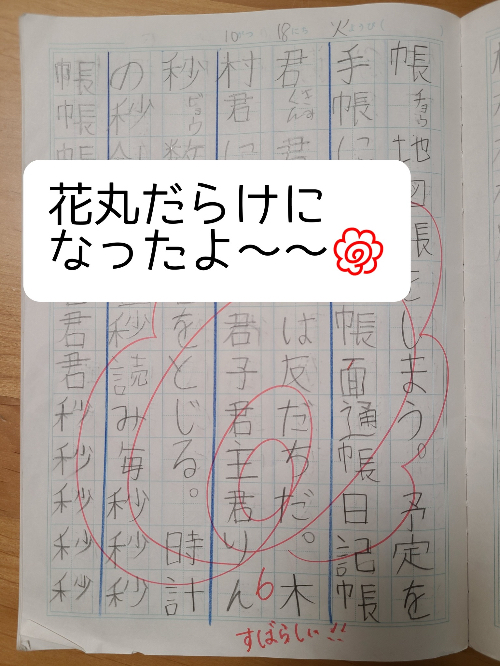 10がつ 18にち 火ようび
花丸だらけに
なったよ〜〜
帳 チョウ 地図帳にしまう。予定を
手帳に
帳面通帳日記帳
君 きみ クン 君
は友だちだ。木
村君に
君子君主君りん
秒 ビョウ 秒数
をとじる。時計
の秒針
秒読み毎秒秒秒
帳帳帳
君君秒秒秒秒秒
6
すばらしい!!